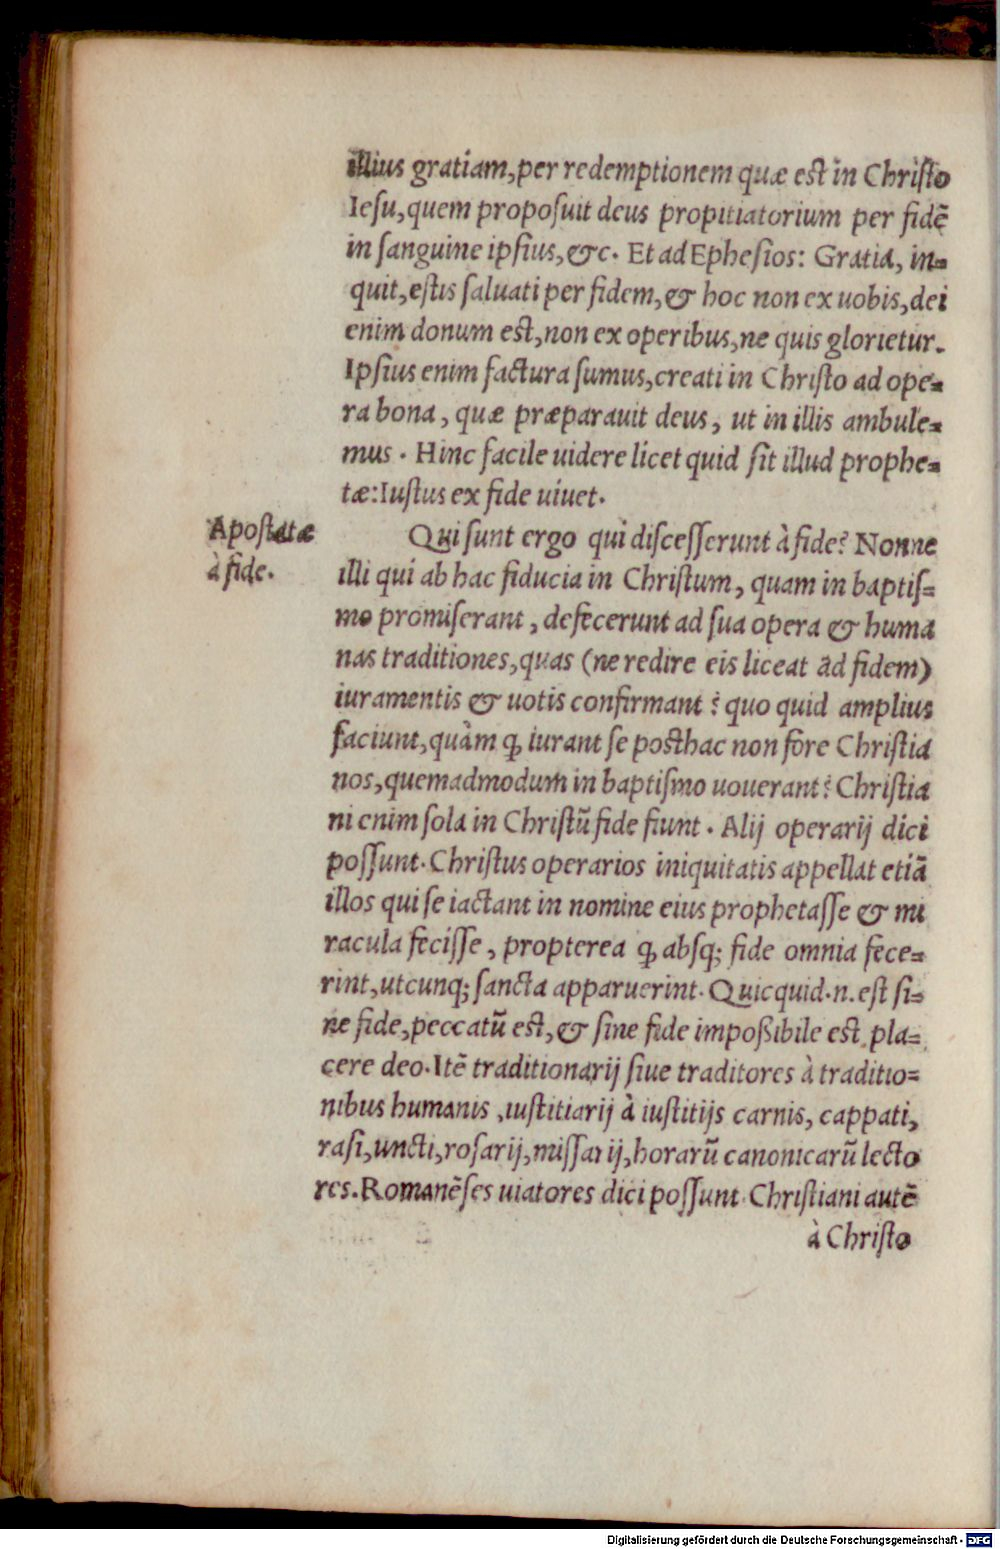 illius gratiam, per redemptionem quæ est in Christo
Iesu, quem proposuit deus propitiatorium per fidē
in sanguine ipsius, &c. Et ad Ephesios: Gratia, in=
quit, estis saluati per fidem, & hoc non ex uobis, dei
enim donum est, non ex operibus, ne quis glorietur.
Ipsius enim factura sumus, creati in Christo ad ope=
ra bona, quæ præparauit deus, ut in illis ambule=
mus. Hinc facile uidere licet quid sit illud prophe=
tæ: Iustus ex fide uiuet.
Apostatæ
à fide.
Qui sunt ergo qui discesserunt à fide? Nonne
illi qui ab hac fiducia in Christum, quam in baptis=
mo promiserant, defecerunt ad sua opera & huma
nas traditiones, quas (ne redire eis liceat ad fidem)
iuramentis & uotis confirmant? quo quid amplius
faciunt, quàm ꝙ iurant se posthac non fore Christia
nos, quemadmodum in baptismo uouerant? Christia
ni enim sola in Christū fide fiunt. Alij operarij dici
possunt. Christus operarios iniquitatis appellat etiā
illos qui se iactant in nomine eius prophetasse & mi
racula fecisse, propterea ꝙ absq; fide omnia fece=
rint, utcunq; sancta apparuerint. Quicquid .n. est si=
ne fide, peccatū est, & sine fide impoßibile est pla=
cere deo. Itē traditionarij siue traditores à traditio=
nibus humanis, iustitiarij à iustitijs carnis, cappati,
rasi, uncti, rosarij, missarij, horarū canonicarū lecto
res. Romanēses uiatores dici possunt. Christiani autē
à Christo
Digitalisierung gefördert durch die Deutsche Forschungsgemeinschaft - DFG